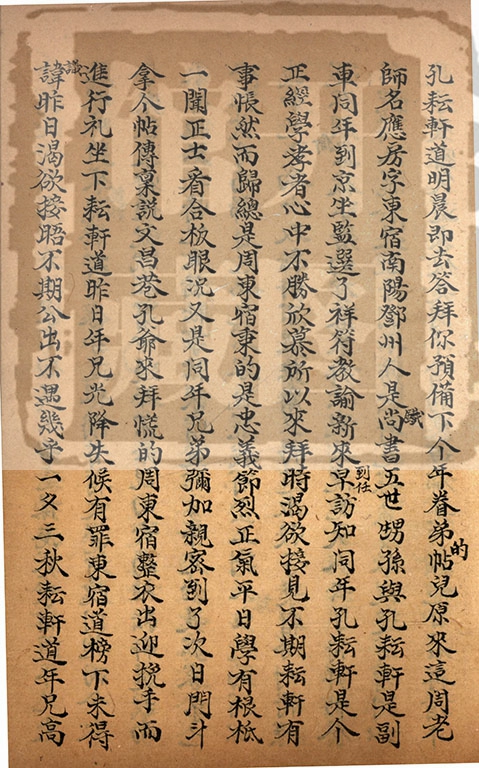 孔耘軒道明晨即去答拜你預備下个年眷弟的帖兒原來這周老
師名應房字東宿南陽鄧州人是鐵尚書五世甥孫與孔耘軒是副
車同年到京坐監選了祥符教諭新來到任早訪知同年孔耘軒是个
正經學孝者心中不勝欣慕所以來拜時渴欲接見不期耘軒有
事悵然而歸總是周東宿秉的是忠義節烈正氣平日學有根柢
一聞正士看合板眼況又是同年兄弟彌加親密到了次日門斗
拿个帖傳稟說文昌巷孔爺來拜慌的周東宿整衣出迎挽手而
進行礼坐下耘軒道昨日年兄光降失候有罪東宿道榜下未得
議諱昨日渴欲接晤不期公出不遇幾乎一夕三秋耘軒道年兄高